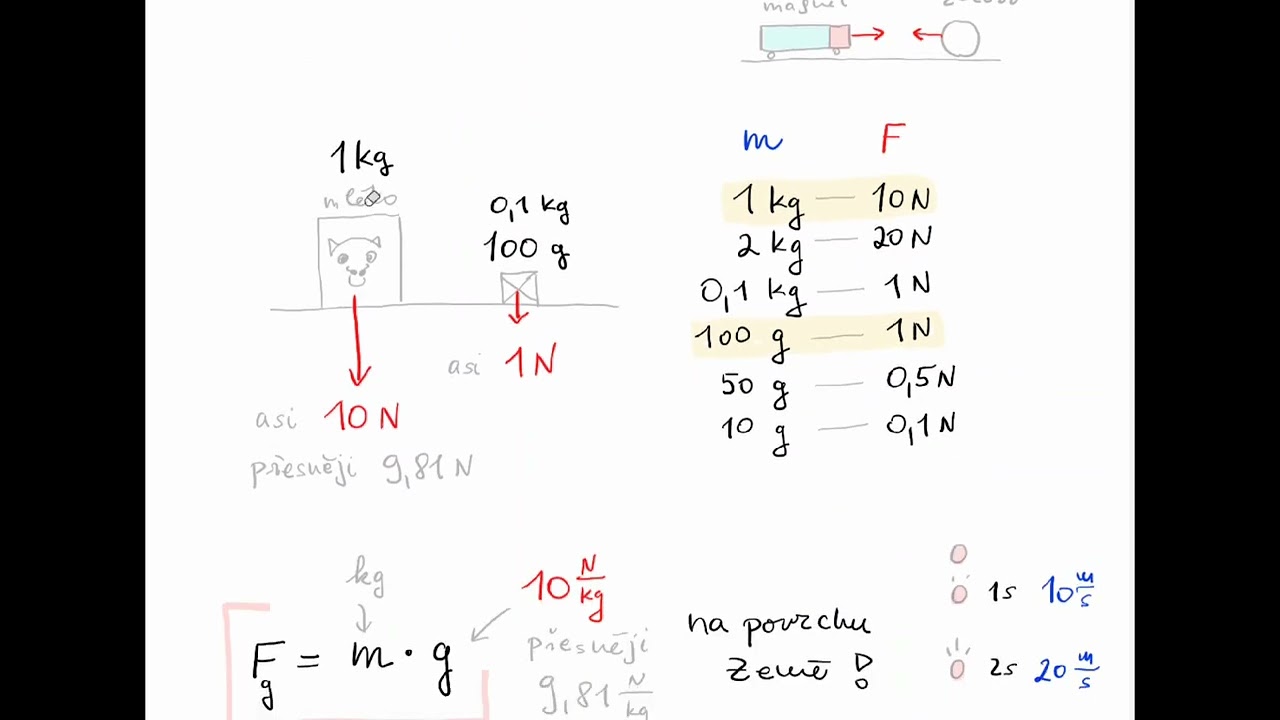 magnet
m F
1 kg — 10 N
2 kg — 20 N
0,1 kg — 1 N
100 g — 1 N
50 g — 0,5 N
10 g — 0,1 N
1 kg
mléko
0,1 kg
100 g
asi 1 N
asi 10 N
přesněji 9,81 N
kg
10 N/kg
Fg = m · g
přesněji
9,81 N/kg
na povrchu
Země !
1s 10 m/s
2s 20 m/s